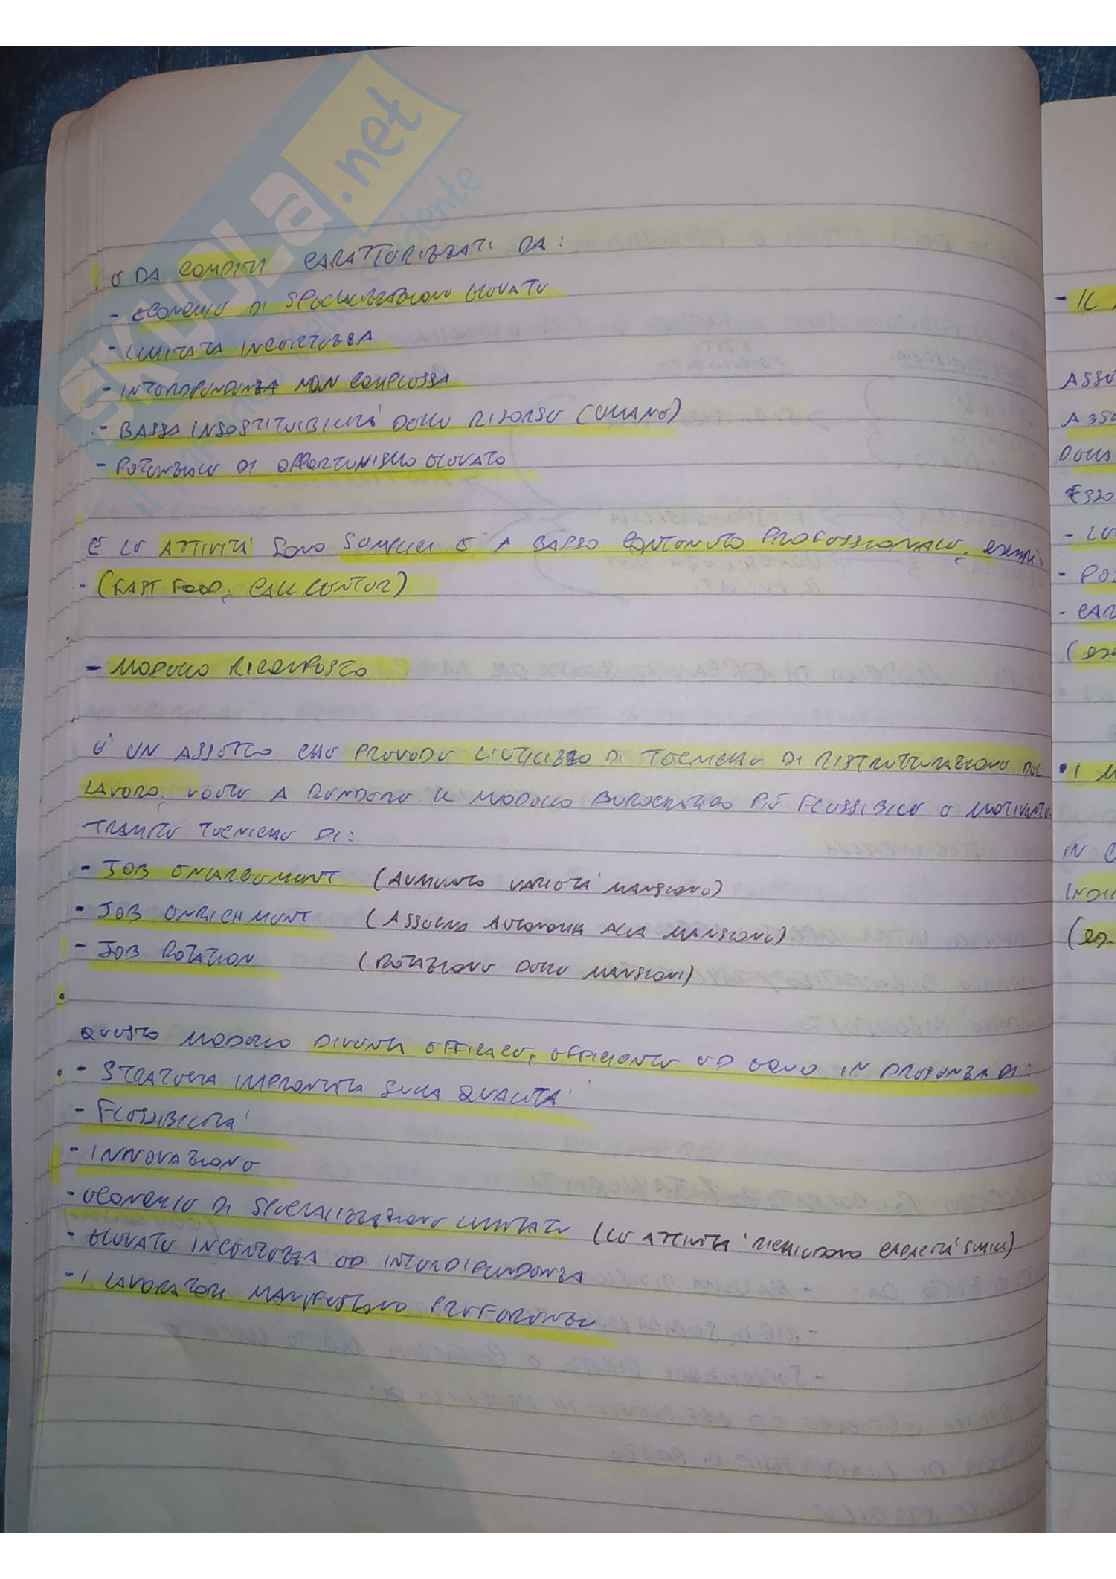 SKUOLA.net
E DA COMPITI CARATTERIZZATI DA:
- ECONOMIE DI SPECIALIZZAZIONE ELEVATE
- LIMITATA INCERTEZZA
- INTERDIPENDENZA NON COMPLESSA
- BASSA INSOSTITUIBILITÀ DELLE RISORSE (UMANE)
- POTENZIALE DI OPPORTUNISMO ELEVATO
E LE ATTIVITÀ SONO SEMPLICI E A BASSO CONTENUTO PROFESSIONALE, esempi
- (FAST FOOD, CALL CENTER)
- MODELLO RICOMPOSTO
È UN ASSETTO CHE PREVEDE L'UTILIZZO DI TECNICHE DI RISTRUTTURAZIONE DEL
LAVORO, VOLTE A RENDERE IL MODELLO BUROCRATICO PIÙ FLESSIBILE E MOTIVANTE
TRAMITE TECNICHE DI:
- JOB ENLARGEMENT (AUMENTO VARIETÀ MANSIONE)
- JOB ENRICHMENT (ASSEGNA AUTONOMIA ALLA MANSIONE)
- JOB ROTATION (ROTAZIONE DELLE MANSIONI)
QUESTO MODELLO DIVENTA EFFICACE, EFFICIENTE ED EQUO IN PRESENZA DI:
- STRATEGIA IMPRONTATA SULLA QUALITÀ
- FLESSIBILITÀ
- INNOVAZIONE
- ECONOMIE DI SPECIALIZZAZIONE LIMITATE (LE ATTIVITÀ RICHIEDONO CAPACITÀ SIMILI)
- ELEVATE INCERTEZZA ED INTERDIPENDENZA
- I LAVORATORI MANIFESTANO PREFERENZE
- IL